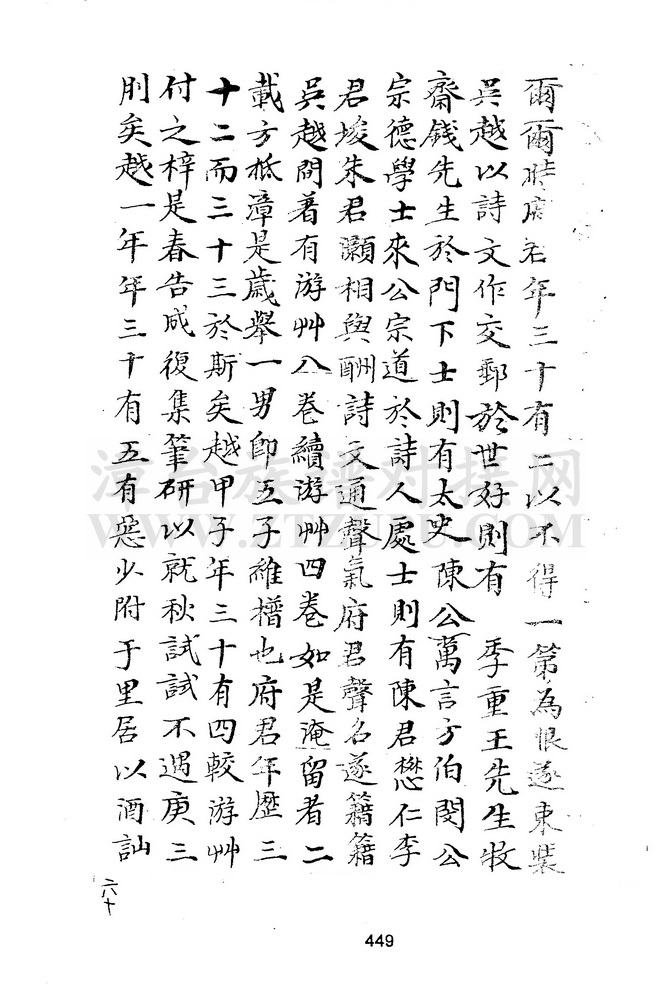 爾爾時府君年三十有二以不得一第為恨遂束裝
吳越以詩文作交郵於世好則有　季重王先生牧
齋錢先生於門下士則有太史陳公萬言方伯閔公
宗德學士來公宗道於詩人處士則有陳君懋仁李
君埈朱君灝相與酬詩文通聲氣府君聲名遂籍籍
吳越問著有游艸八卷續游艸四卷如是淹留者二
載方抵漳是歲舉一男即五子維櫓也府君年歷三
十二而三十三於斯矣越甲子年三十有四較游艸
付之梓是春告成復集筆研以就秋試試不遇庚三
刖矣越一年年三十有五有惡少附于里居以酒訕
六十
449
漳台族谱对接网
WWW.ZTZUPU.COM